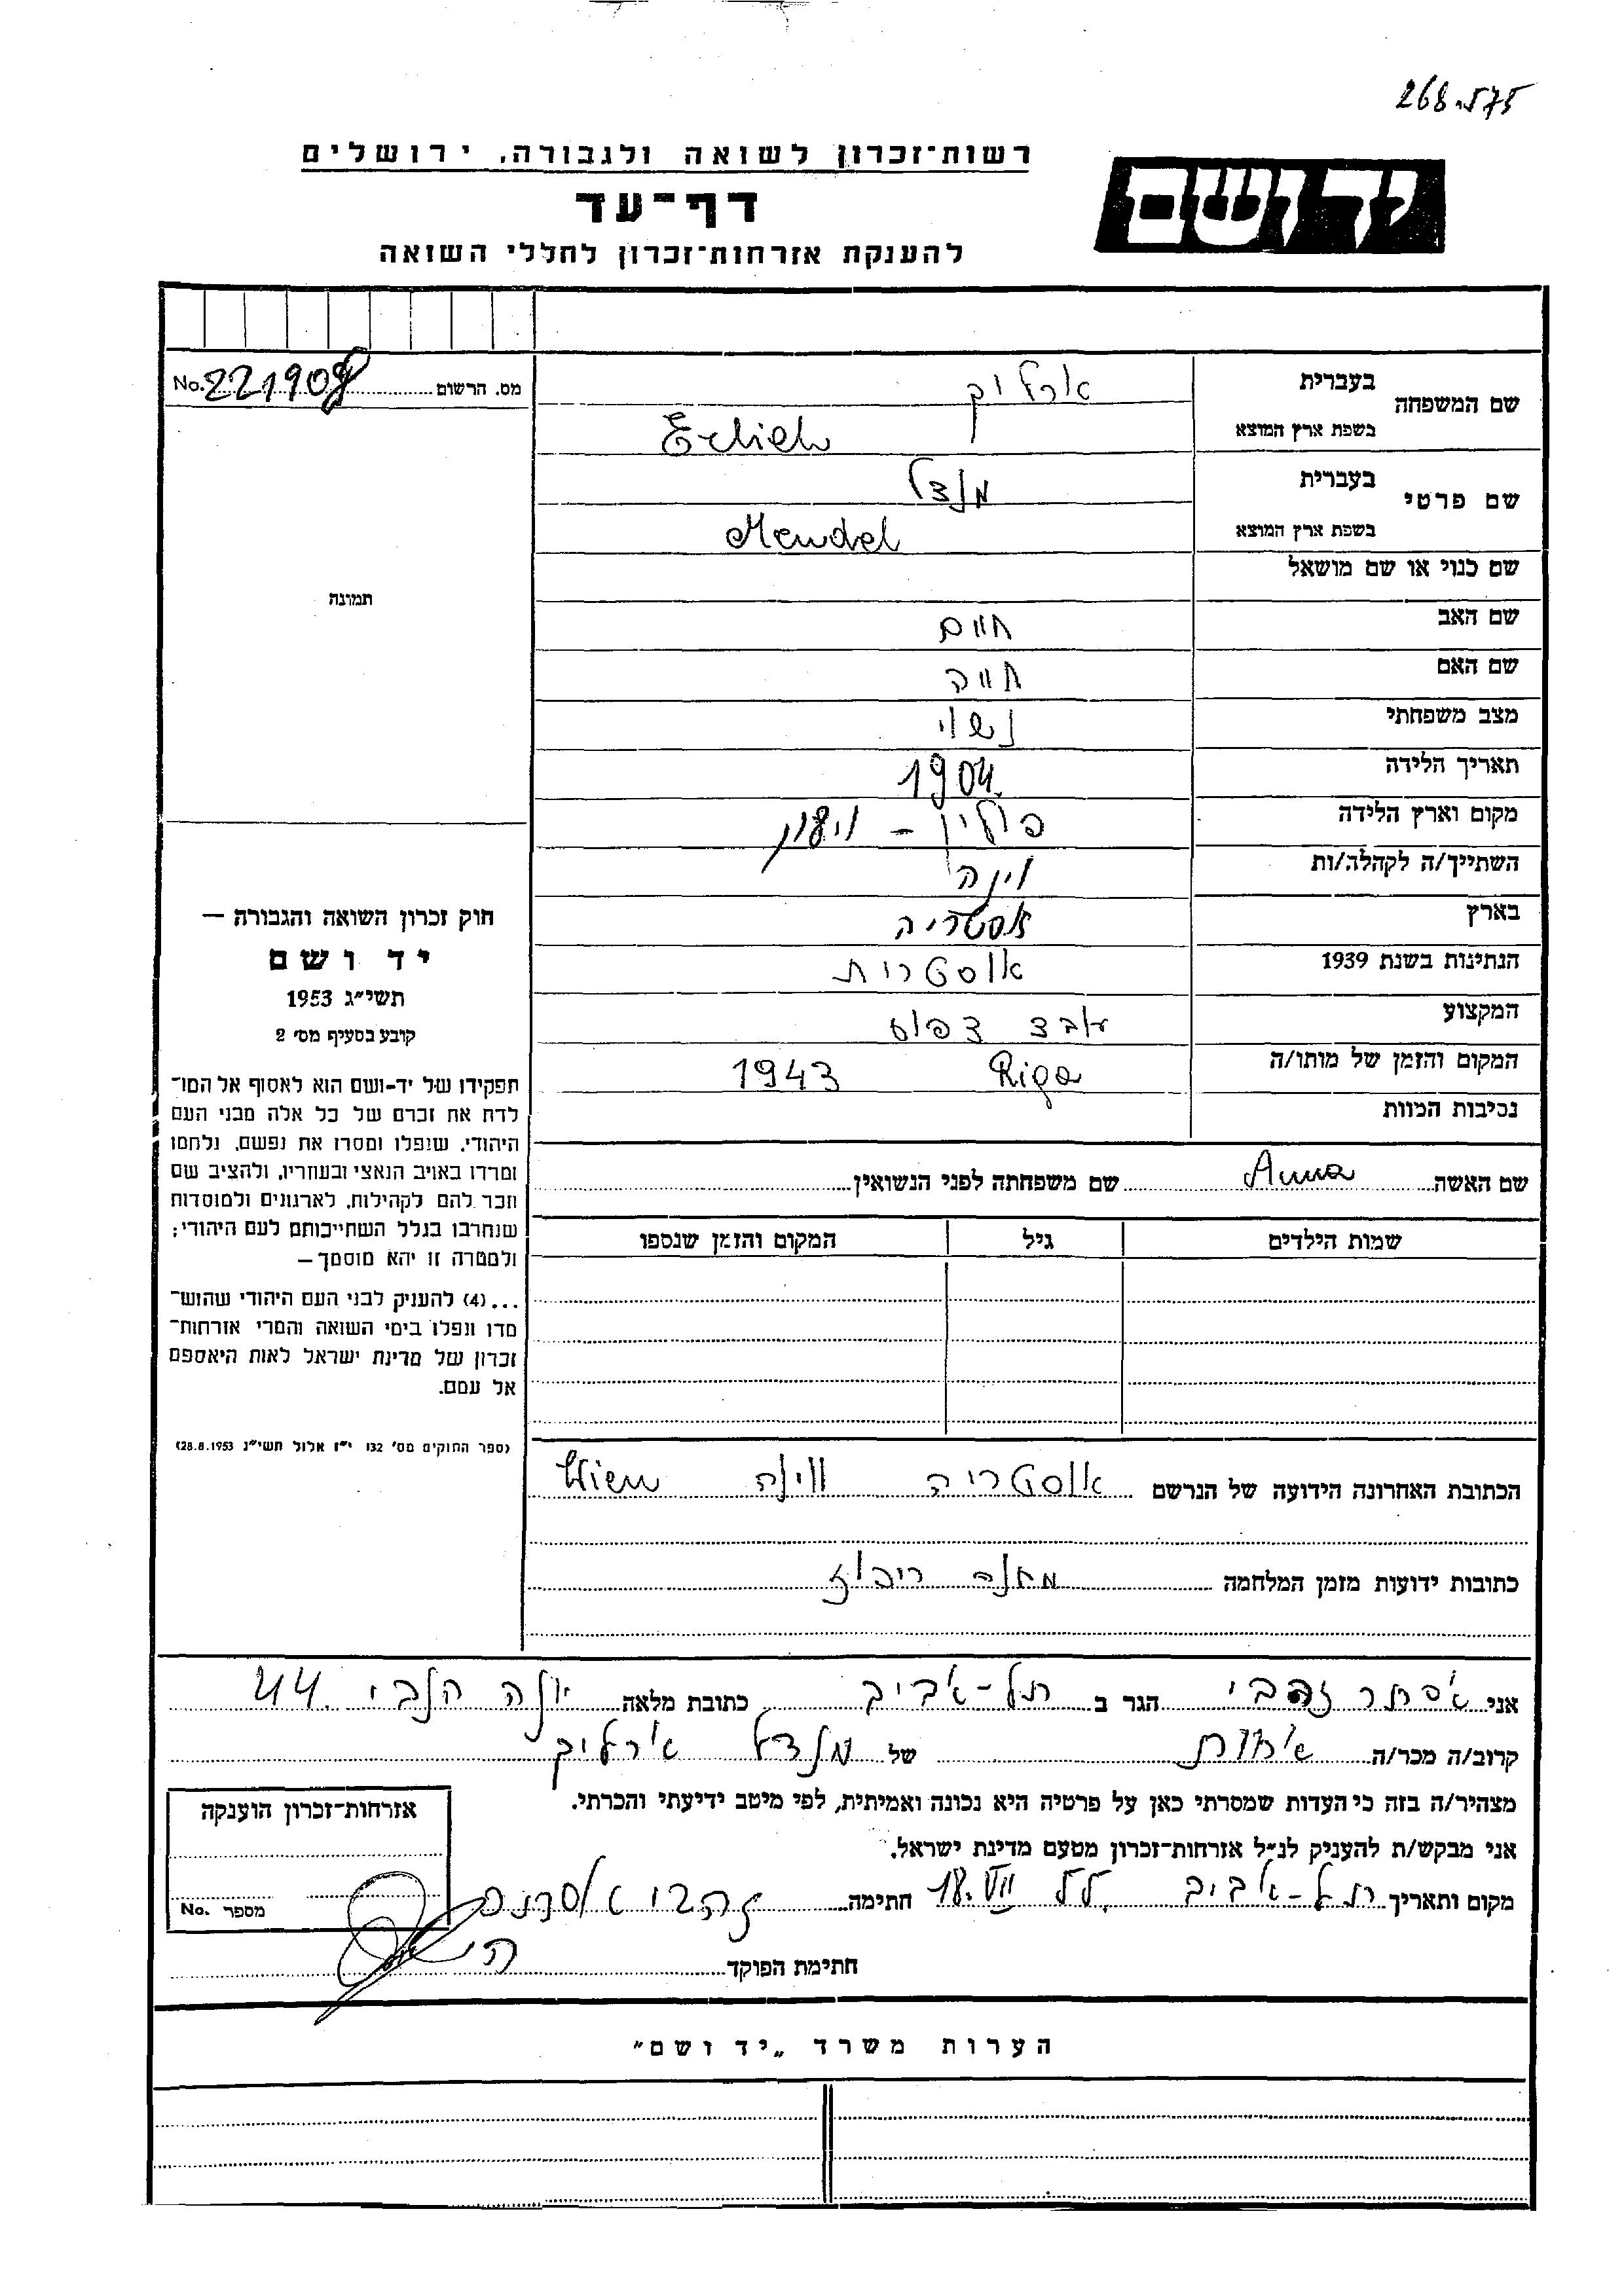 268.575
רשות-זכרון לשואה ולגבורה, ירושלים
יד ושם
דף-עד
להענקת אזרחות-זכרון לחללי השואה
מס. הרשום No. 221908
שם המשפחה
בעברית ארליך
בשפת ארץ המוצא Erlich
שם פרטי
בעברית מנדל
בשפת ארץ המוצא Mendel
שם כנוי או שם מושאל
שם האב חיים
שם האם חווה
מצב משפחתי נשוי
תאריך הלידה 1904
מקום וארץ הלידה פולין –
השתייך/ה לקהלה/ות וינה
בארץ אוסטריה
הנתינות בשנת 1939 אוסטרית
המקצוע
המקום והזמן של מותו/ה Riga 1943
נסיבות המוות
תמונה
חוק זכרון השואה והגבורה –
יד ושם
תשי״ג 1953
קובע בסעיף מס׳ 2
תפקידו של יד-ושם הוא לאסוף אל המו־
לדת את זכרם של כל אלה מבני העם
היהודי, שנפלו ומסרו את נפשם, נלחמו
ומרדו באויב הנאצי ובעוזריו, ולהציב שם
וזכר להם לקהילות, לארגונים ולמוסדות
שנחרבו בגלל השתייכותם לעם היהודי;
ולמטרה זו יהא מוסמך–
...(4) להעניק לבני העם היהודי שהוש־
מדו ונפלו בימי השואה והמרי אזרחות־
זכרון של מדינת ישראל לאות היאספם
אל עמם.
(ספר החוקים מס׳ 132 י״ז אלול תשי״ג 28.8.1953)
שם האשה Anna שם משפחתה לפני הנשואין
שמות הילדים גיל המקום והזמן שנספו
הכתובת האחרונה הידועה של הנרשם אוסטריה ווינה Wien
כתובות ידועות מזמן המלחמה מחנה ריכוז
אני אסתר זהבי הגר ב תל-אביב כתובת מלאה יונה הנביא 44
קרוב/ה מכר/ה אחות של מנדל ארליך
מצהיר/ה בזה כי העדות שמסרתי כאן על פרטיה היא נכונה ואמיתית, לפי מיטב ידיעתי והכרתי.
אני מבקש/ת להעניק לנ״ל אזרחות-זכרון מטעם מדינת ישראל.
מקום ותאריך תל-אביב 18.VII חתימה זהבי אסתר
חתימת הפוקד
אזרחות-זכרון הוענקה
מספר No.
הערות משרד „יד ושם״